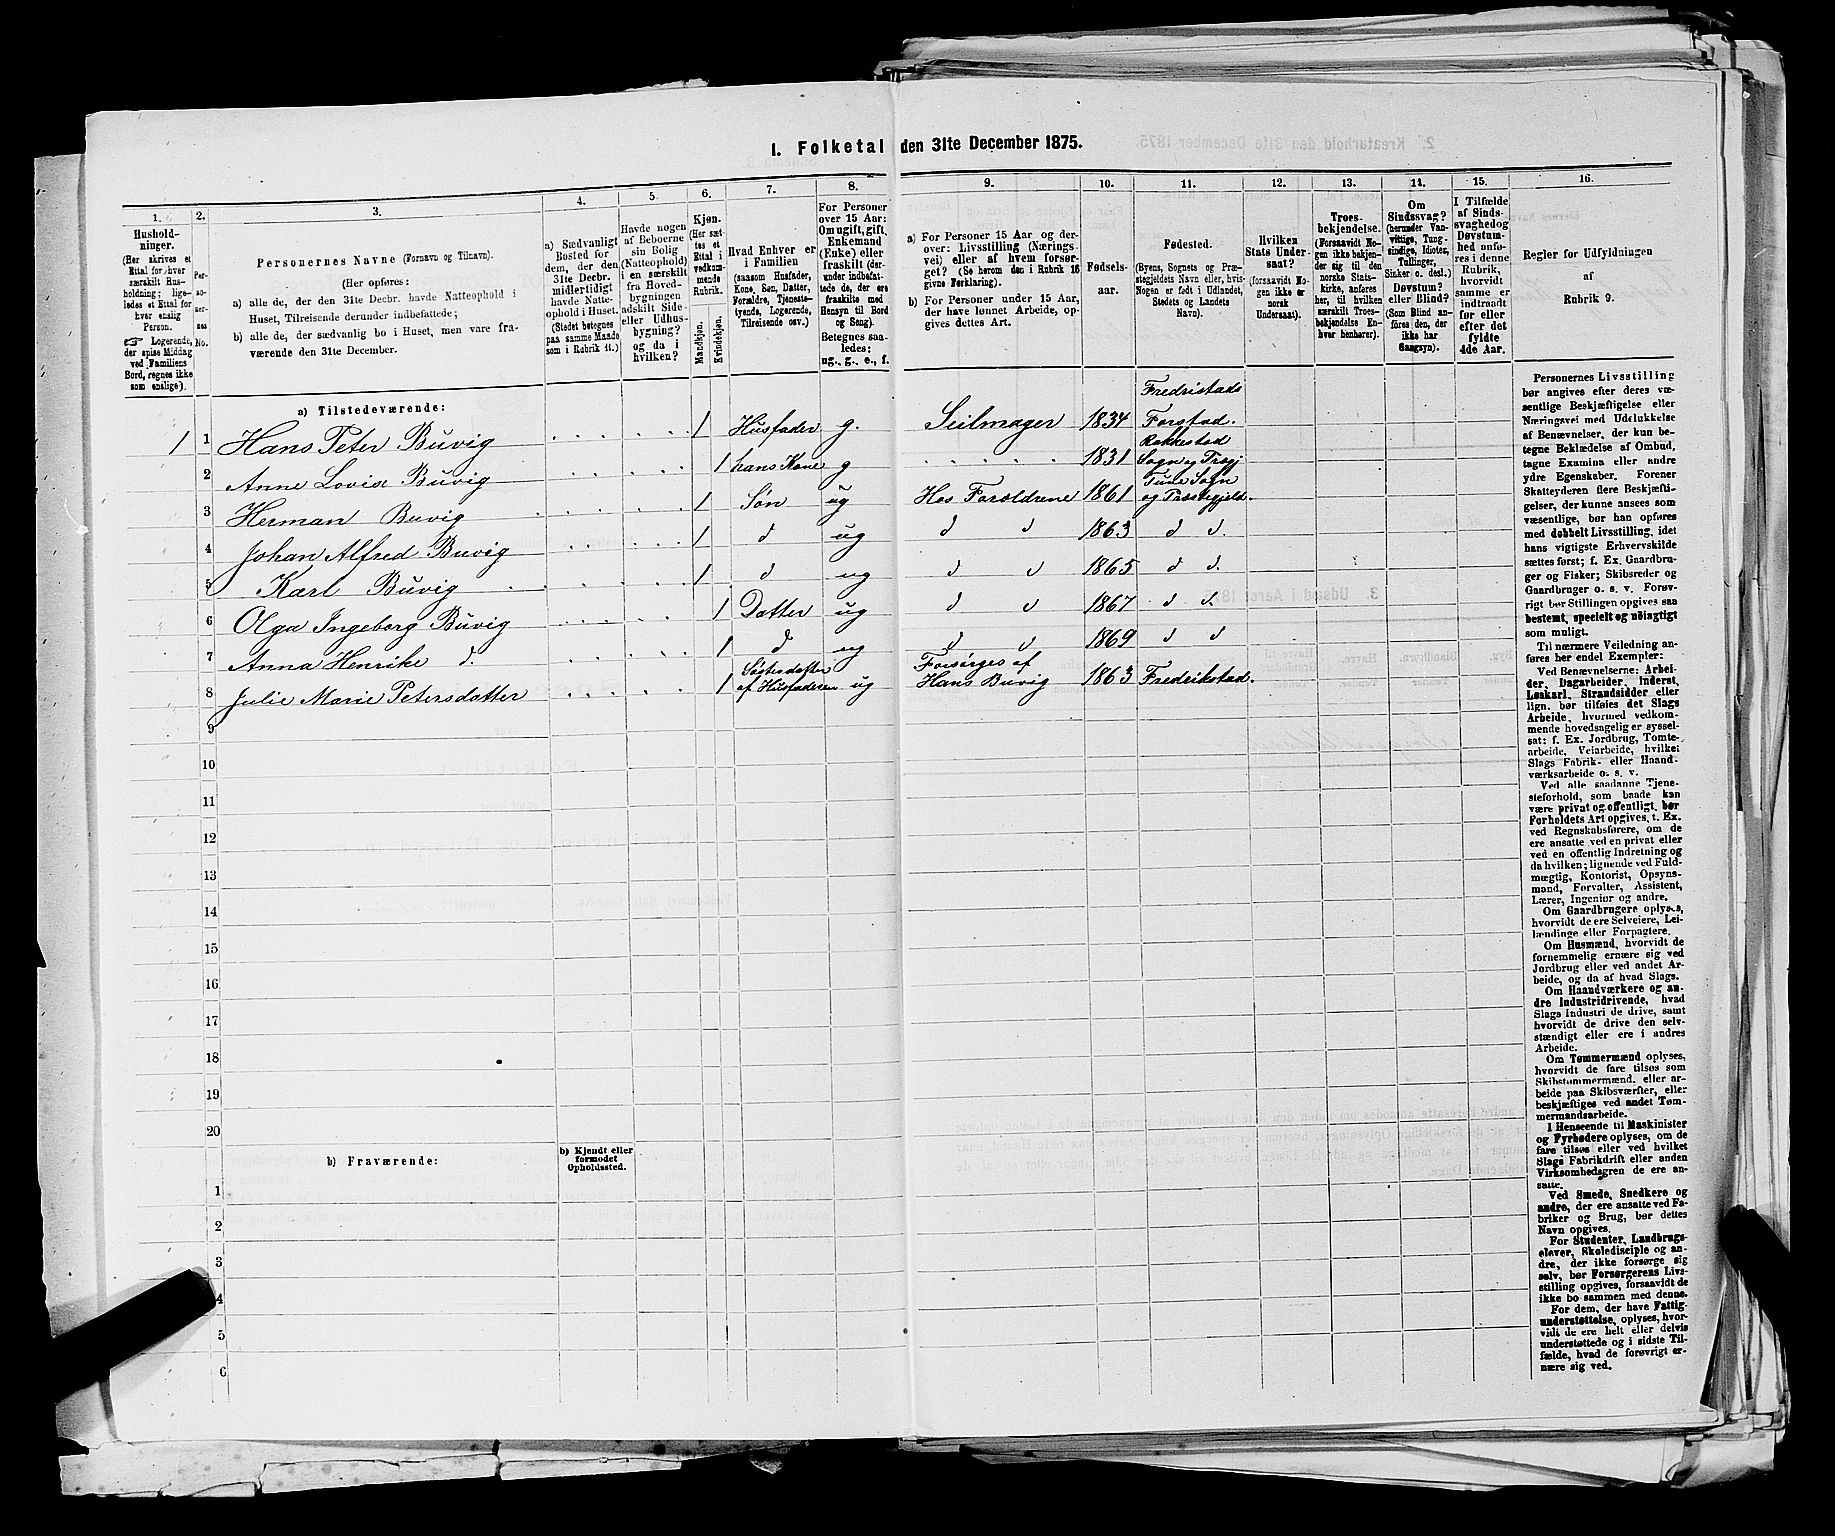 I. Folketal den 31te December 1875.
1. 2. 3. 4. 5. 6. 7. 8. 9. 10. 11. 12. 13. 14. 15. 16.
Hushold-
ninger.
(Her skrives et
Ettal for hver
særskilt Hus-
holdning; lige-
ledes et Ettal for
hver enslig
Person.
☞ Logerende,
der spise Middag
ved Familiens
Bord, regnes ikke
som enslige).
Per-
so-
ner-
nes
No.
Personernes Navne (Fornavn og Tilnavn).
(Her opføres:
a) alle de, der den 31te Decbr. havde Natteophold i
Huset, Tilreisende derunder indbefattede;
b) alle de, der sædvanlig bo i Huset, men vare fra-
værende den 31te December.
a) Sædvanligt
Bosted for
dem, der den
31te Decbr.
midlertidigt
havde Natte-
ophold i Huset.
(Stedet betegnes
paa samme Maade
som i Rubrik 11.)
Havde nogen
af Beboerne
sin Bolig
(Natteophold)
i en særskilt
fra Hoved-
bygningen
adskilt Side-
eller Udhus-
bygning?
og da i
hvilken?
Kjøn.
(Her sæt-
tes et
Ettal i
vedkom-
mende
Rubrik.
Mandkjøn.
Kvindekjøn.
Hvad Enhver er
i Familien
(saasom Husfader,
Kone, Søn, Datter,
Forældre, Tjeneste-
tyende, Logerende,
Tilreisende osv.)
For Personer
over 15 Aar:
Om ugift, gift,
Enkemand
(Enke) eller
fraskilt (der-
under indbefat-
tede de, der ere
fraskilte med
Hensyn til Bord
og Seng).
Betegnes saa-
ledes:
ug., g., e., f.
a) For Personer 15 Aar og der-
over: Livsstilling (Nærings-
vei) eller af hvem forsør-
get? (Se herom den i Rubrik 16
givne Forklaring).
b) For Personer under 15 Aar,
der have lønnet Arbeide, op-
gives dettes Art.
Fødsels-
aar.
Fødested.
(Byens, Sognets og Præ-
stegjeldets Navn eller, hvis
Nogen er født i Udlandet,
Stedets og Landets
Navn).
Hvilken
Stats Under-
saat?
(forsaavidt No-
gen ikke er
norsk
Undersaat).
Troes-
bekjendelse.
(Forsaavidt No-
gen ikke bekjen-
der sig til den
norske Stats-
kirke, anføres
her, til hvilken
særskilt Troes-
bekjendelse En-
hver henhører).
Om
Sindssvag?
(herunder Van-
vittige, Tung-
sindige, Idioter,
Tullinger,
Sinker o. desl.)
Døvstum?
eller Blind?
(Som Blind an-
føres den, der
ikke har
Gangsyn).
I Tilfælde
af Sinds-
svaghed og
Døvstum-
hed anfø-
res i denne
Rubrik,
hvorvidt
samme er
indtraadt
før eller
efter det
fyldte
4de Aar.
Regler for Udfyldningen
af
Rubrik 9.
a) Tilstedeværende:
1 1 Hans Peter Buvig 1 Husfader g. Seilmager 1834 Fredristads Forstad.
2 Anne Lovise Buvig 1 hans Kone g 1831 Rakkestad Sogn og Prægj.
3 Herman Buvig 1 Søn ug Hos Forældrene 1861 Tune Sogn og Præstegjeld.
4 Johan Alfred Buvig 1 d ug d d 1863 d d.
5 Karl Buvig 1 d ug d d 1865 d d.
6 Olga Ingeborg Buvig 1 Datter ug d d 1867 d d.
7 Anna Henrike d. 1 d ug d d 1869 d d
8 Julie Marie Petersdatter 1 Søsterdatter af Husfaderen ug Forsørges af Hans Buvig 1863 Fredrikstad.
9
10
11
12
13
14
15
16
17
18
19
20
b) Fraværende:
b) Kjendt eller
formodet
Opholdssted.
1
2
3
4
5
6
Personernes Livsstilling
bør angives efter deres væ-
sentlige Beskjæftigelse eller
Næringsvei med Udelukkelse
af Benævnelser, der kun be-
tegne Beklædelse af Ombud,
tagne Examina eller andre
ydre Egenskaber. Forener
Skatteyderen flere Beskjæfti-
gelser, der kunne ansees som
væsentlige, bør han opføres
med dobbelt Livsstilling, idet
hans vigtigste Erhvervskilde
sættes først; f. Ex. Gaardbru-
ger og Fisker; Skibsreder og
Gaardbruger o. s. v. Forøv-
rigt bør Stillingen opgives saa
bestemt, specielt og nøiagtigt
som muligt.
Til nærmere Veiledning an-
føres her endel Exempler:
Ved Benævnelserne: Arbei-
der, Dagarbeider, Inderst,
Løskarl, Strandsidder eller
lign. bør tilføies det Slags
Arbeide, hvormed vedkom-
mende hovedsagelig er syssel-
sat: f. Ex. Jordbrug, Tomte-
arbeide, Veiarbeide, hvilket
Slags Fabrik- eller Haand-
værksarbeide o. s. v.
Ved alle saadanne Tjene-
steforhold, som baade kan
være privat og offentligt, bør
Forholdets Art opgives, t. Ex.
ved Regnskabsførere, om de
ere ansatte ved en privat eller
ved en offentlig Indretning og
da hvilken; lignende ved Fuld-
mægtig, Kontorist, Opsyns-
mand, Forvalter, Assistent,
Lærer, Ingeniør og andre.
Om Gaardbrugere oplyses,
hvorvidt de ere Selveiere, Lei-
lændinge eller Forpagtere.
Om Husmænd, hvorvidt de
fornemmelig ernære sig ved
Jordbrug eller ved andet Ar-
beide, og da af hvad Slags.
Om Haandværkere og an-
dre Industridrivende, hvad
Slags Industri de drive, samt
hvorvidt de drive den selv-
stændigt eller ere i andres
Arbeide.
Om Tømmermænd oplyses,
hvorvidt de fare tilsøs som
Skibstømmermænd, eller ar-
beide paa Skibsværfter, eller
beskjæftiges ved andet Tøm-
mermandsarbeide.
I Henseende til Maskinister
og Fyrbødere oplyses, om de
fare tilsøs eller ved hvilket
Slags Fabrikdrift eller anden
Virksomhedsgren de ere an-
satte.
Ved Smede, Snedkere og
andre, der ere ansatte ved Fa-
briker og Brug, bør dettes
Navn opgives.
For Studenter, Landbrugs-
elever, Skoledisciple og an-
dre, der ikke forsørge sig
selv, bør Forsørgerens Livs-
stilling opgives, forsaavidt de
ikke bo sammen med denne.
For dem, der have Fattig-
understøttelse, oplyses, hvor-
vidt de ere helt eller delvis
understøttede og i sidste Til-
fælde, hvad de forøvrigt er-
nære sig ved.